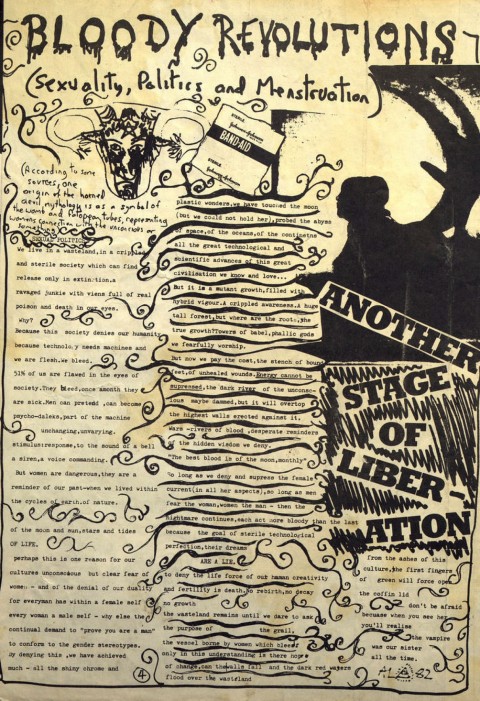 BLOODY REVOLUTIONS
(Sexuality, Politics and Menstruation)
STERILE
Johnson & Johnson
BAND-AID
STERILE
Johnson & Johnson
(According to some
sources, one
origin of the horned
devil mythology is as a symbol of
the womb and Falopean tubes, representing
womens connection with the unconscious or
something)
SEXUAL POLITICS
We live in a wasteland, in a crippled
and sterile society which can find
release only in extinction.a
ravaged junkie with viens full of real
poison and death in our eyes.
why?
Because this society denies our humanity
because technology needs machines and
we are flesh.We bleed.
51% of us are flawed in the eyes of
society.They bleed,once amonth they
are sick.Men can pretend ,can become
psycho-ddleks,part of the machine
unchanging,unvarying.
stimulusresponse,to the sound of a bell
a siren,a voice commanding.
But women are dangerous,they are a
reminder of our past-when we lived within
the cycles of earth.of nature.
of the moon and sun,stars and tides
OF LIFE.
perhaps this is one reason for our
cultures unconscious but clear fear of
women - and of the denial of our duality
for everyman has within a female self
every woman a male self - why else the
continual demand to "prove you are a man"
to conform to the gender stereotypes.
By denying this ,we have achieved
much - all the shiny chrome and
4
plastic wonders,we have touched the moon
(but we could not hold her),probed the abyss
of space,of the oceans,of the continetns
all the great technological and
scientific advances of this great
civilisation we know and love...
But it is a mutant growth,filled with
hybrid vigour.A crippled awareness.A huge
tall forest,but where are the roots,the
true growth?Towers of babel,phallic gods
we fearfully worship.
But now we pay the cost,the stench of bound
feet,of unhealed wounds.Energy cannot be
supressed,the dark river of the unconsc-
ious maybe dammed,but it will overtop
the highest walls erected against it.
wars -rivers of blood ,desperate reminders
of the hidden wisdom we deny.
"The best blood is of the moon,monthly"
So long as we deny and supress the female
current(in all her aspects),so long as men
fear the woman,women the man - then the
nightmare continues,each act more bloody than the last
because the goal of sterile technological
perfection,their dreams
ARE A LIE.
to deny the life force of our human creativity
and fertility is death.No rebirth,no decay
no growth
the wasteland remains until we dare to ask
the purpose of the grail,
the vessel borne by women which bleeds
only in this understanding is there hope
of change,can the walls fall and the dark red waters
flood over the wasteland
ANOTHER
STAGE
OF
LIBER-
ATION
from the ashes of this
culture,the first fingers
of green will force open
the coffin lid
don't be afraid
because when you see her
you'll realise
the vampire
was our sister
all the time.
82